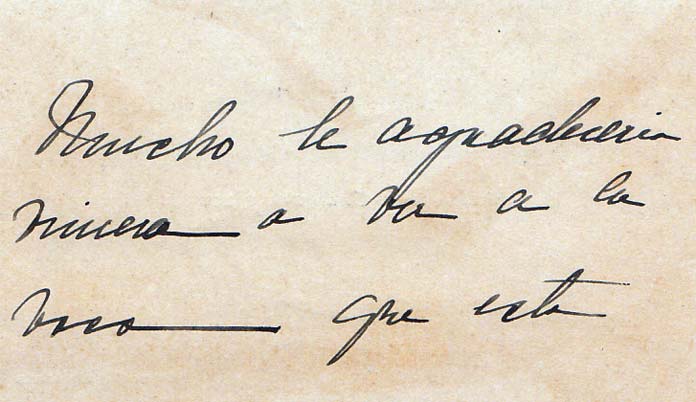 Mucho le agradeceria
viniera a ver a la
que esta